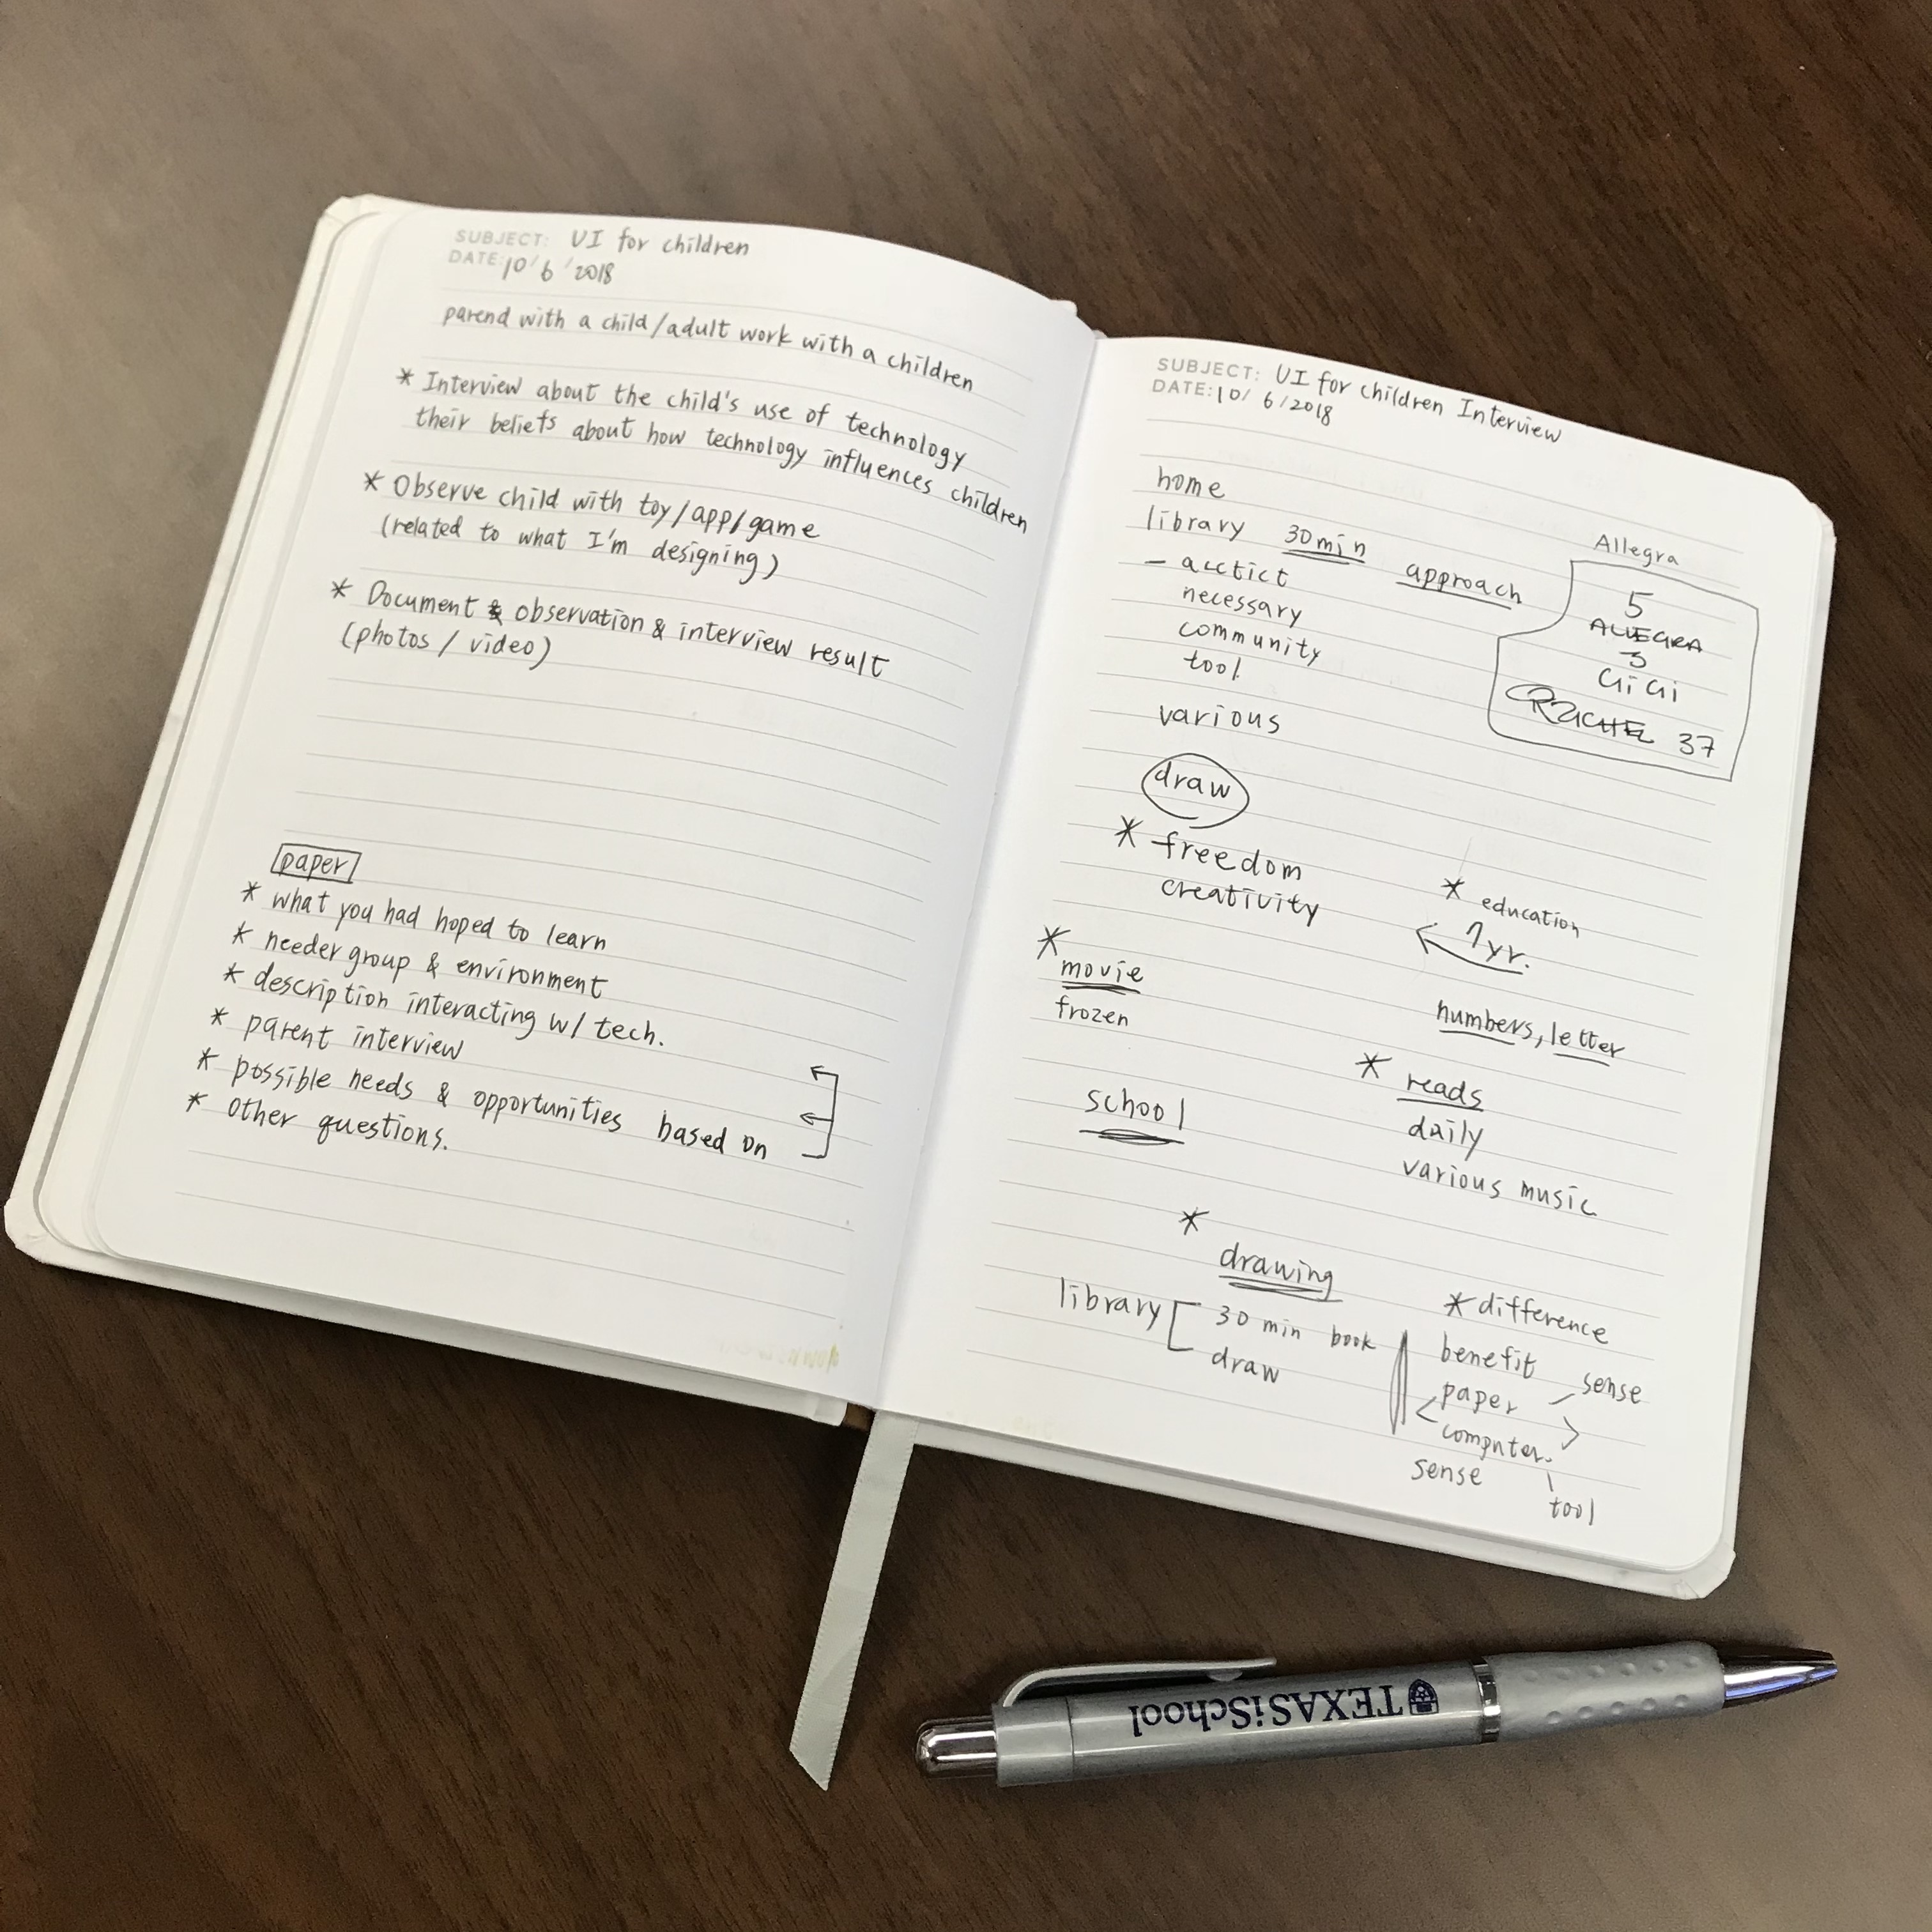 SUBJECT: UI for children
DATE: 10/6/2018
parend with a child/adult work with a children
* Interview about the child's use of technology
their beliefs about how technology influences children
* Observe child with toy/app/game
(related to what I'm designing)
* Document & observation & interview result
(photos / video)
paper
* what you had hoped to learn
* needer group & environment
* description interacting w/ tech.
* parent interview
* possible needs & opportunities based on
* other questions.
SUBJECT: UI for children Interview
DATE: 10/6/2018
home
library 30min approach
necessary
community
tool
various
Allegra
5
ALLEGRA
3
GiGi
RACHEL 37
draw
* freedom
creativity
* education
1yr.
numbers, letter
* movie
frozen
* reads
daily
various music
school
* drawing
library [ 30 min book
draw
* difference
benefit
paper sense
computer.
sense
tool
TEXAS iSchool